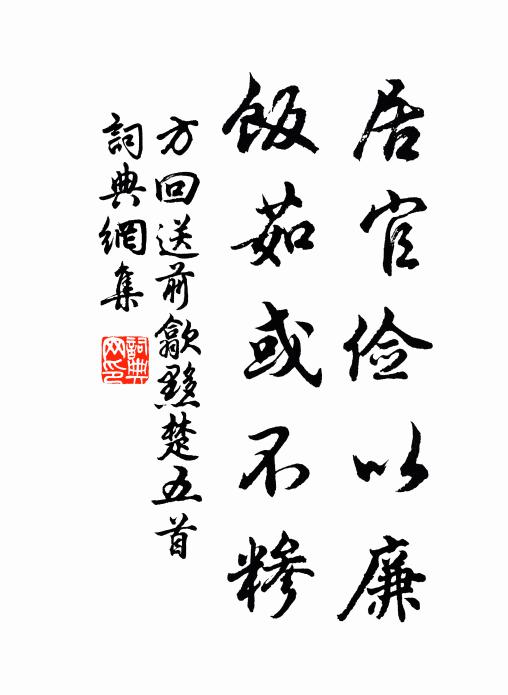 居官俭以廉
飯茹或不糁
方回送前歙黟楚五首
詞典網集
詞典
网印